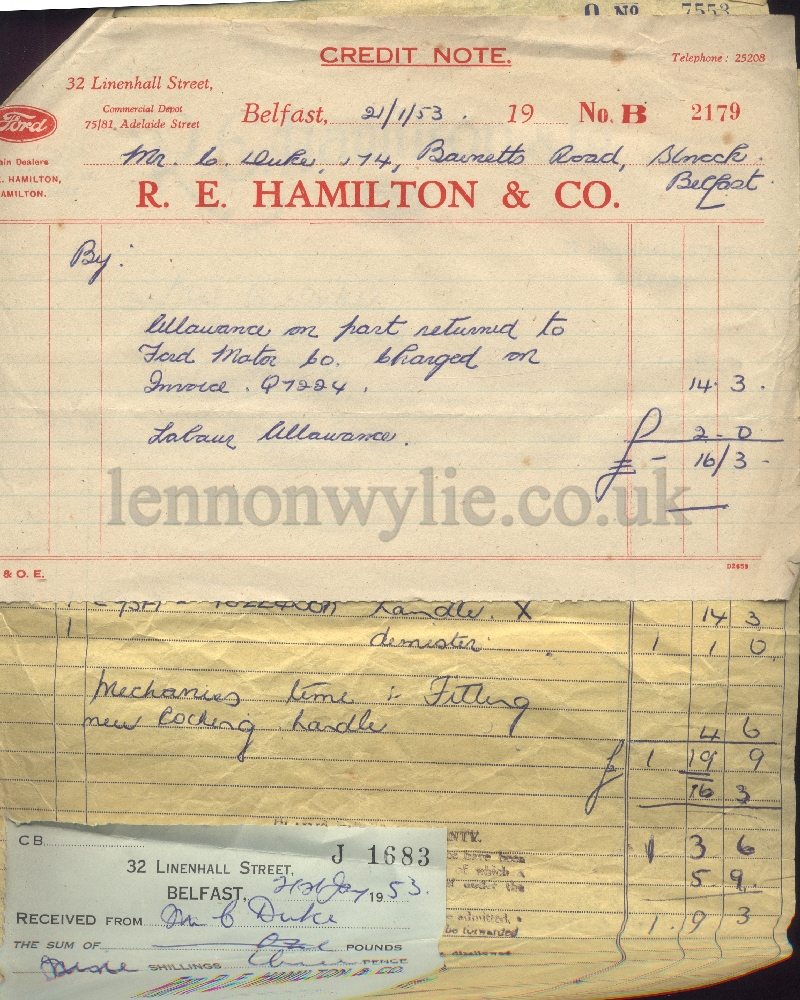 Q No 7553
CREDIT NOTE.
Telephone: 25208
32 Linenhall Street,
Commercial Depot
75/81, Adelaide Street
Belfast, 21/1/53. 19 No. B 2179
Ford
ain Dealers
. HAMILTON,
AMILTON.
Mr. C. Duke, 174, Barnetts Road,
Belfast.
R. E. HAMILTON & CO.
By:
Allowance on part returned to
Ford Motor Co. Charged on
Invoice. Q7224. 14. 3.
Labour Allowance. 2 - 0
£ - 16/3 -
lennonwylie.co.uk
& O. E.
handle. X 14 3
1 demister 1 1 0
Mechanics time :- Fitting
new locking handle 4 6
£ 1 19 9
16 3
NTY.
1 3 6
have been
of which a
under the
5 9
admitted, a
be forwarded
1. 9 3
CB
J 1683
32 LINENHALL STREET,
BELFAST, 21st Jan 1953.
RECEIVED FROM Mr C Duke
THE SUM OF One POUNDS
nine SHILLINGS three PENCE
R. E. HAMILTON & CO.